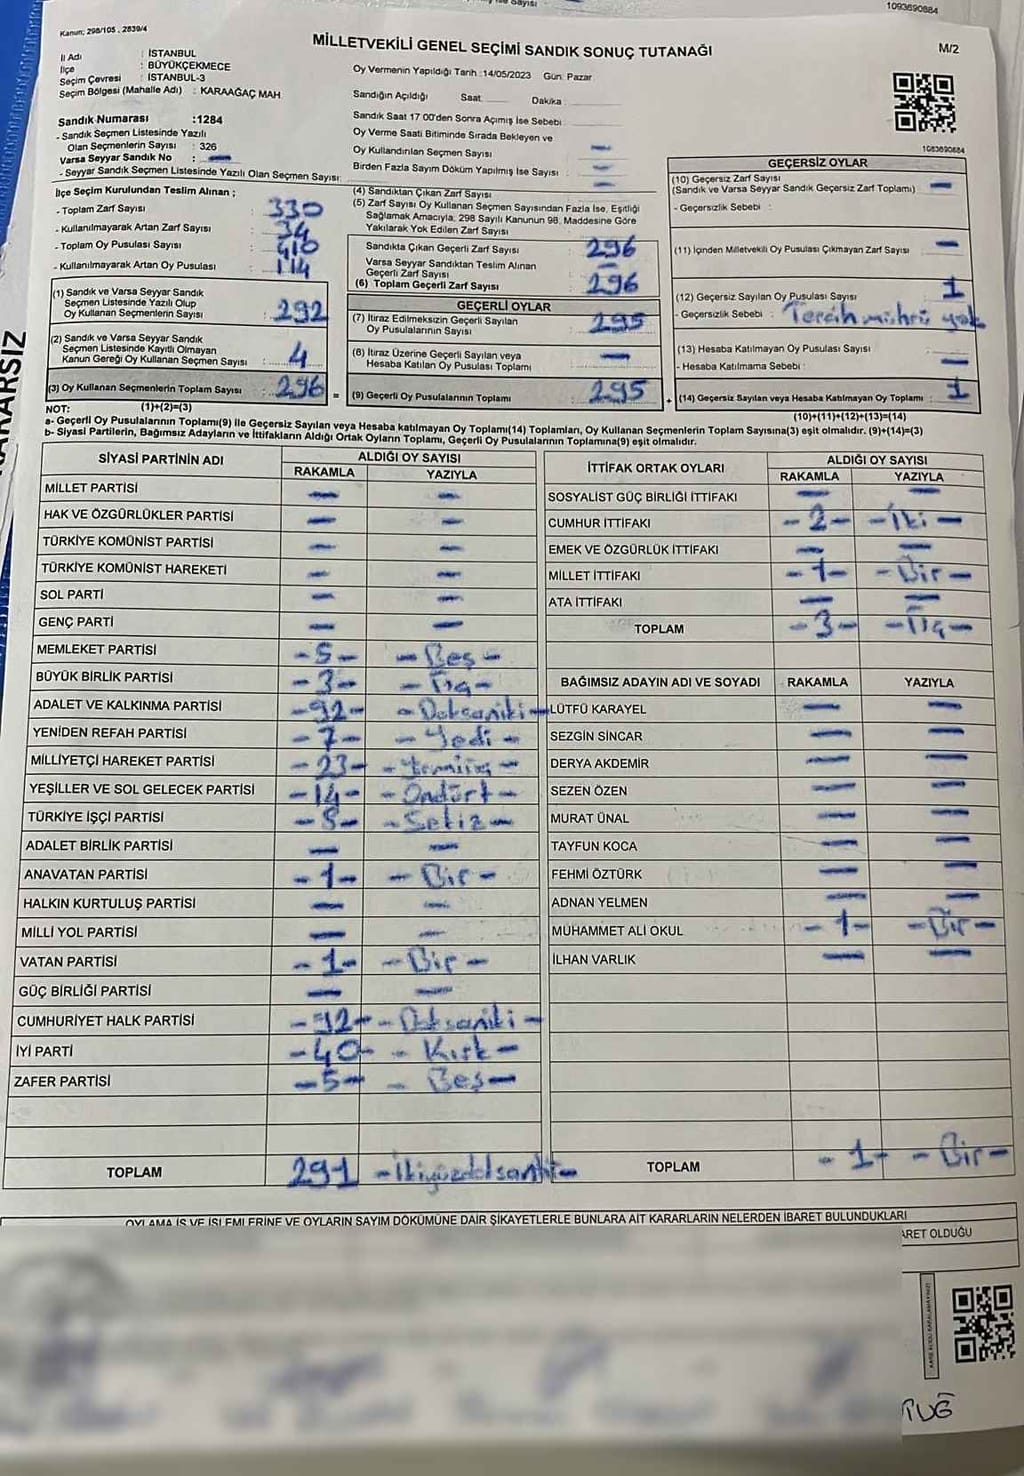 1093690884
Kanun; 298/105 . 2839/4
MİLLETVEKİLİ GENEL SEÇİMİ SANDIK SONUÇ TUTANAĞI
M/2
İl Adı : İSTANBUL
İlçe : BÜYÜKÇEKMECE
Seçim Çevresi : İSTANBUL-3
Seçim Bölgesi (Mahalle Adı) : KARAAĞAÇ MAH.
Sandık Numarası :1284
- Sandık Seçmen Listesinde Yazılı
Olan Seçmenlerin Sayısı : 326
Varsa Seyyar Sandık No : —
- Seyyar Sandık Seçmen Listesinde Yazılı Olan Seçmen Sayısı:
Oy Vermenin Yapıldığı Tarih :14/05/2023 Gün: Pazar
Sandığın Açıldığı Saat: Dakika:
Sandık Saat 17 00'den Sonra Açımış İse Sebebi:
Oy Verme Saati Bitiminde Sırada Bekleyen ve
Oy Kullandırılan Seçmen Sayısı —
Birden Fazla Sayım Döküm Yapılmış İse Sayısı : —
İlçe Seçim Kurulundan Teslim Alınan ;
- Toplam Zarf Sayısı : 330
- Kullanılmayarak Artan Zarf Sayısı : 34
- Toplam Oy Pusulası Sayısı : 410
- Kullanılmayarak Artan Oy Pusulası : 114
(1) Sandık ve Varsa Seyyar Sandık
Seçmen Listesinde Yazılı Olup
Oy Kullanan Seçmenlerin Sayısı : 292
(2) Sandık ve Varsa Seyyar Sandık
Seçmen Listesinde Kayıtlı Olmayan
Kanun Gereği Oy Kullanan Seçmen Sayısı : 4
(3) Oy Kullanan Seçmenlerin Toplam Sayısı : 296
(1)+(2)=(3)
(4) Sandıktan Çıkan Zarf Sayısı —
(5) Zarf Sayısı Oy Kullanan Seçmen Sayısından Fazla İse, Eşitliği
Sağlamak Amacıyla, 298 Sayılı Kanunun 98. Maddesine Göre
Yakılarak Yok Edilen Zarf Sayısı :
Sandıkta Çıkan Geçerli Zarf Sayısı : 296
Varsa Seyyar Sandıktan Teslim Alınan
Geçerli Zarf Sayısı : —
(6) Toplam Geçerli Zarf Sayısı : 296
GEÇERLİ OYLAR
(7) İtiraz Edilmeksizin Geçerli Sayılan
Oy Pusulalarının Sayısı : 295
(8) İtiraz Üzerine Geçerli Sayılan veya
Hesaba Katılan Oy Pusulası Toplamı : —
= (9) Geçerli Oy Pusulalarının Toplamı : 295
1093690884
GEÇERSİZ OYLAR
(10) Geçersiz Zarf Sayısı
(Sandık ve Varsa Seyyar Sandık Geçersiz Zarf Toplamı) —
- Geçersizlik Sebebi :
(11) İçinden Milletvekili Oy Pusulası Çıkmayan Zarf Sayısı —
(12) Geçersiz Sayılan Oy Pusulası Sayısı : 1
- Geçersizlik Sebebi : Tercih mührü yok
(13) Hesaba Katılmayan Oy Pusulası Sayısı
- Hesaba Katılmama Sebebi : —
+ (14) Geçersiz Sayılan veya Hesaba Katılmayan Oy Toplamı : 1
(10)+(11)+(12)+(13)=(14)
NOT:
a- Geçerli Oy Pusulasının Toplamı(9) ile Geçersiz Sayılan veya Hesaba katılmayan Oy Toplamı(14) Toplamları, Oy Kullanan Seçmenlerin Toplam Sayısına(3) eşit olmalıdır. (9)+(14)=(3)
b- Siyasi Partilerin, Bağımsız Adayların ve İttifakların Aldığı Ortak Oyların Toplamı, Geçerli Oy Pusulalarının Toplamına(9) eşit olmalıdır.
SİYASİ PARTİNİN ADI ALDIĞI OY SAYISI
RAKAMLA YAZIYLA
MİLLET PARTİSİ — —
HAK VE ÖZGÜRLÜKLER PARTİSİ — —
TÜRKİYE KOMÜNİST PARTİSİ — —
TÜRKİYE KOMÜNİST HAREKETİ — —
SOL PARTİ — —
GENÇ PARTİ — —
MEMLEKET PARTİSİ -5- -Beş-
BÜYÜK BİRLİK PARTİSİ -3- -Üç-
ADALET VE KALKINMA PARTİSİ -92- -Doksaniki-
YENİDEN REFAH PARTİSİ -7- -Yedi-
MİLLİYETÇİ HAREKET PARTİSİ -23- -Yirmiüç-
YEŞİLLER VE SOL GELECEK PARTİSİ -14- -Ondört-
TÜRKİYE İŞÇİ PARTİSİ -8- -Sekiz-
ADALET BİRLİK PARTİSİ — —
ANAVATAN PARTİSİ -1- -Bir-
HALKIN KURTULUŞ PARTİSİ — —
MİLLİ YOL PARTİSİ — —
VATAN PARTİSİ -1- -Bir-
GÜÇ BİRLİĞİ PARTİSİ — —
CUMHURİYET HALK PARTİSİ -92- -Doksaniki-
İYİ PARTİ -40- -Kırk-
ZAFER PARTİSİ -5- -Beş-
TOPLAM 291 -İkiyüzdoksanbir-
İTTİFAK ORTAK OYLARI ALDIĞI OY SAYISI
RAKAMLA YAZIYLA
SOSYALİST GÜÇ BİRLİĞİ İTTİFAKI — —
CUMHUR İTTİFAKI -2- -İki-
EMEK VE ÖZGÜRLÜK İTTİFAKI — —
MİLLET İTTİFAKI -1- -Bir-
ATA İTTİFAKI — —
TOPLAM -3- -Üç-
BAĞIMSIZ ADAYIN ADI VE SOYADI RAKAMLA YAZIYLA
LÜTFÜ KARAYEL — —
SEZGİN SİNCAR — —
DERYA AKDEMİR — —
SEZEN ÖZEN — —
MURAT ÜNAL — —
TAYFUN KOCA — —
FEHMİ ÖZTÜRK — —
ADNAN YELMEN — —
MUHAMMET ALİ OKUL -1- -Bir-
İLHAN VARLIK — —
TOPLAM -1- -Bir-
OYLAMA İŞ VE İŞLEMLERİNE VE OYLARIN SAYIM DÖKÜMÜNE DAİR ŞİKAYETLERLE BUNLARA AİT KARARLARIN NELERDEN İBARET BULUNDUKLARI
ARET OLDUĞU